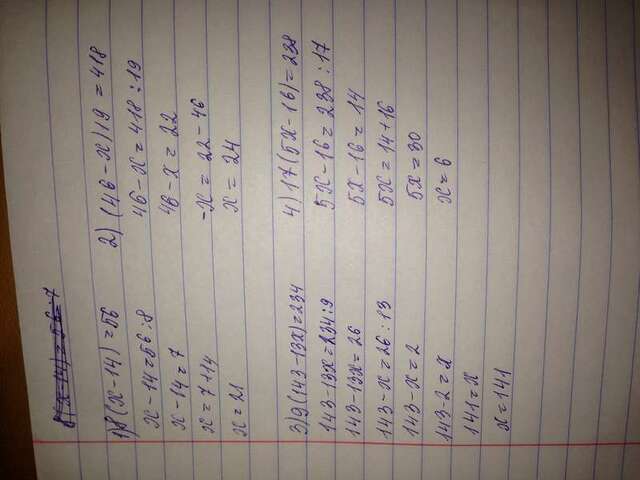 8(x-14)=56:7
1) 8(x-14)=56
x-14=56:8
x-14=7
x=7+14
x=21
2) (46-x)19=418
46-x=418:19
46-x=22
-x=22-46
x=24
3) 9(143-13x)=234
143-13x=234:9
143-13x=26
143-x=26:13
143-x=2
143-2=x
141=x
x=141
4) 17(5x-16)=238
5x-16=238:17
5x-16=14
5x=14+16
5x=30
x=6